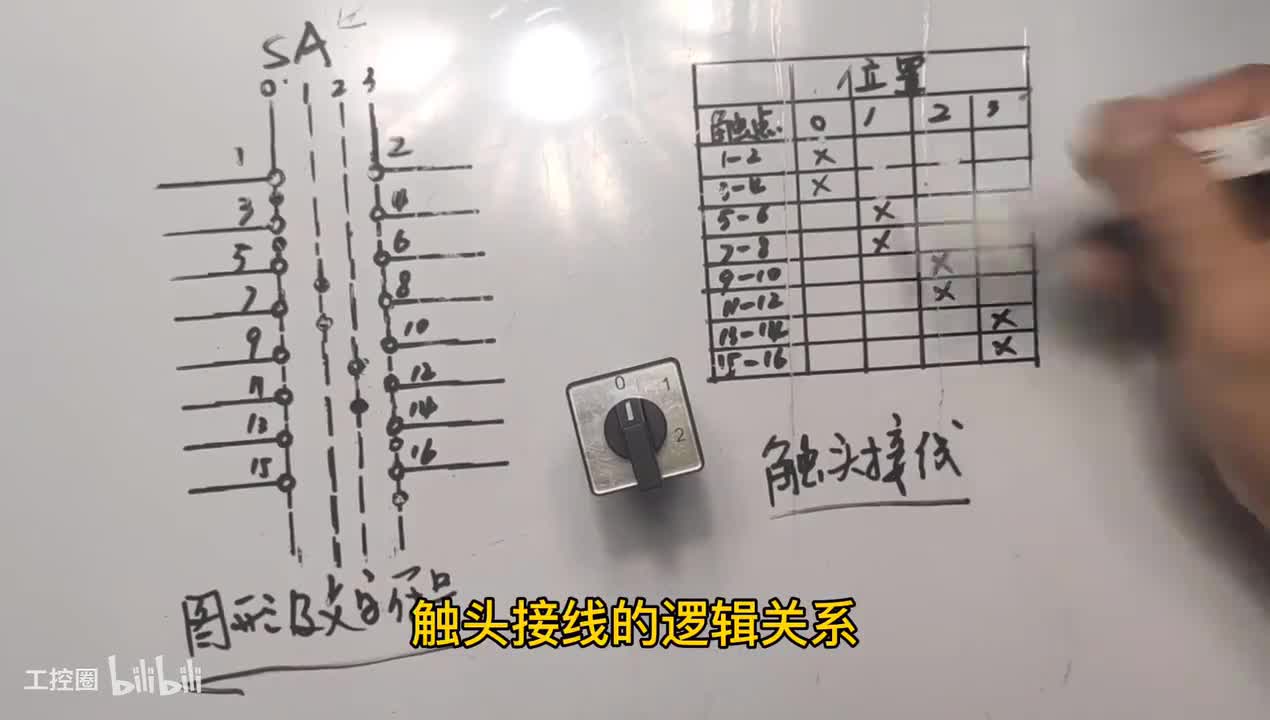 SA
0 1 2 3
1 2
3 4
5 6
7 8
9 10
11 12
13 14
15 16
图形及文字符号
位置
触点 0 1 2 3
1-2 ×
3-4 ×
5-6 ×
7-8 ×
9-10 ×
11-12 ×
13-14 ×
15-16 ×
0 1
2
触头接线
触头接线的逻辑关系
工控圈 bilibili